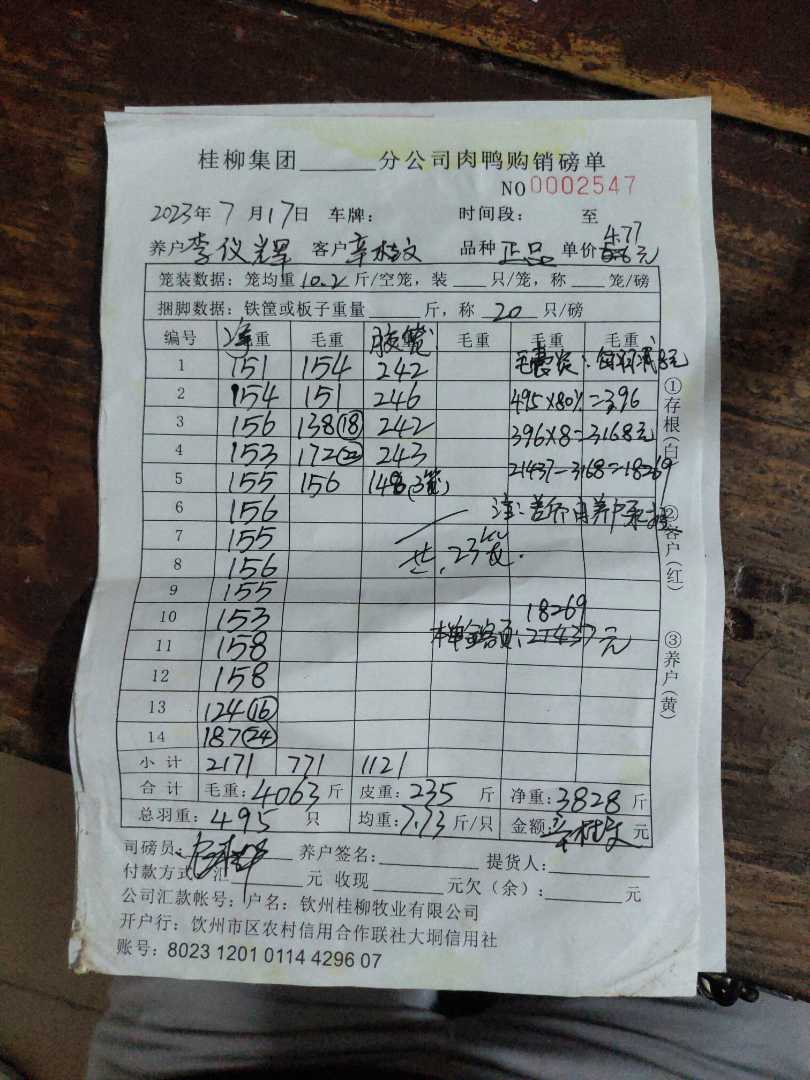 桂柳集团______分公司肉鸭购销磅单
NO 0002547
2023年 7 月 17日 车牌: 时间段: 至
4.77
养户 李仪辉 客户 辛桂文 品种 正品 单价 元
笼装数据: 笼均重 10.2 斤/空笼, 装 ___ 只/笼, 称 ___ 笼/磅
捆脚数据: 铁筐或板子重量 ______ 斤, 称 20 只/磅
编号 净重 毛重 胶笼 毛重 毛重 毛重
1 151 154 242
2 154 151 246 495×80%=396
3 156 138(18) 242 396×8=3168元
4 153 172(22) 243 21437-3168=18269
5 155 156 148(3笼)
6 156 注:差价由养户承担
7 155
8 156 共.23笼.
9 155
10 153 18269
11 158 本单金额:21437元
12 158
13 124(16)
14 187(24)
小计 2171 771 1121
合计 毛重:4063斤 皮重:235 斤 净重:3828斤
总羽重:495 只 均重:7.73斤/只 金额:辛桂文 元
司磅员: 养户签名: 提货人:
付款方式: 汇 元 收现 元欠(余): 元
公司汇款帐号: 户名: 钦州桂柳牧业有限公司
开户行: 钦州市区农村信用合作联社大垌信用社
账号: 8023 1201 0114 4296 07
①存根(白)
②客户(红)
③养户(黄)